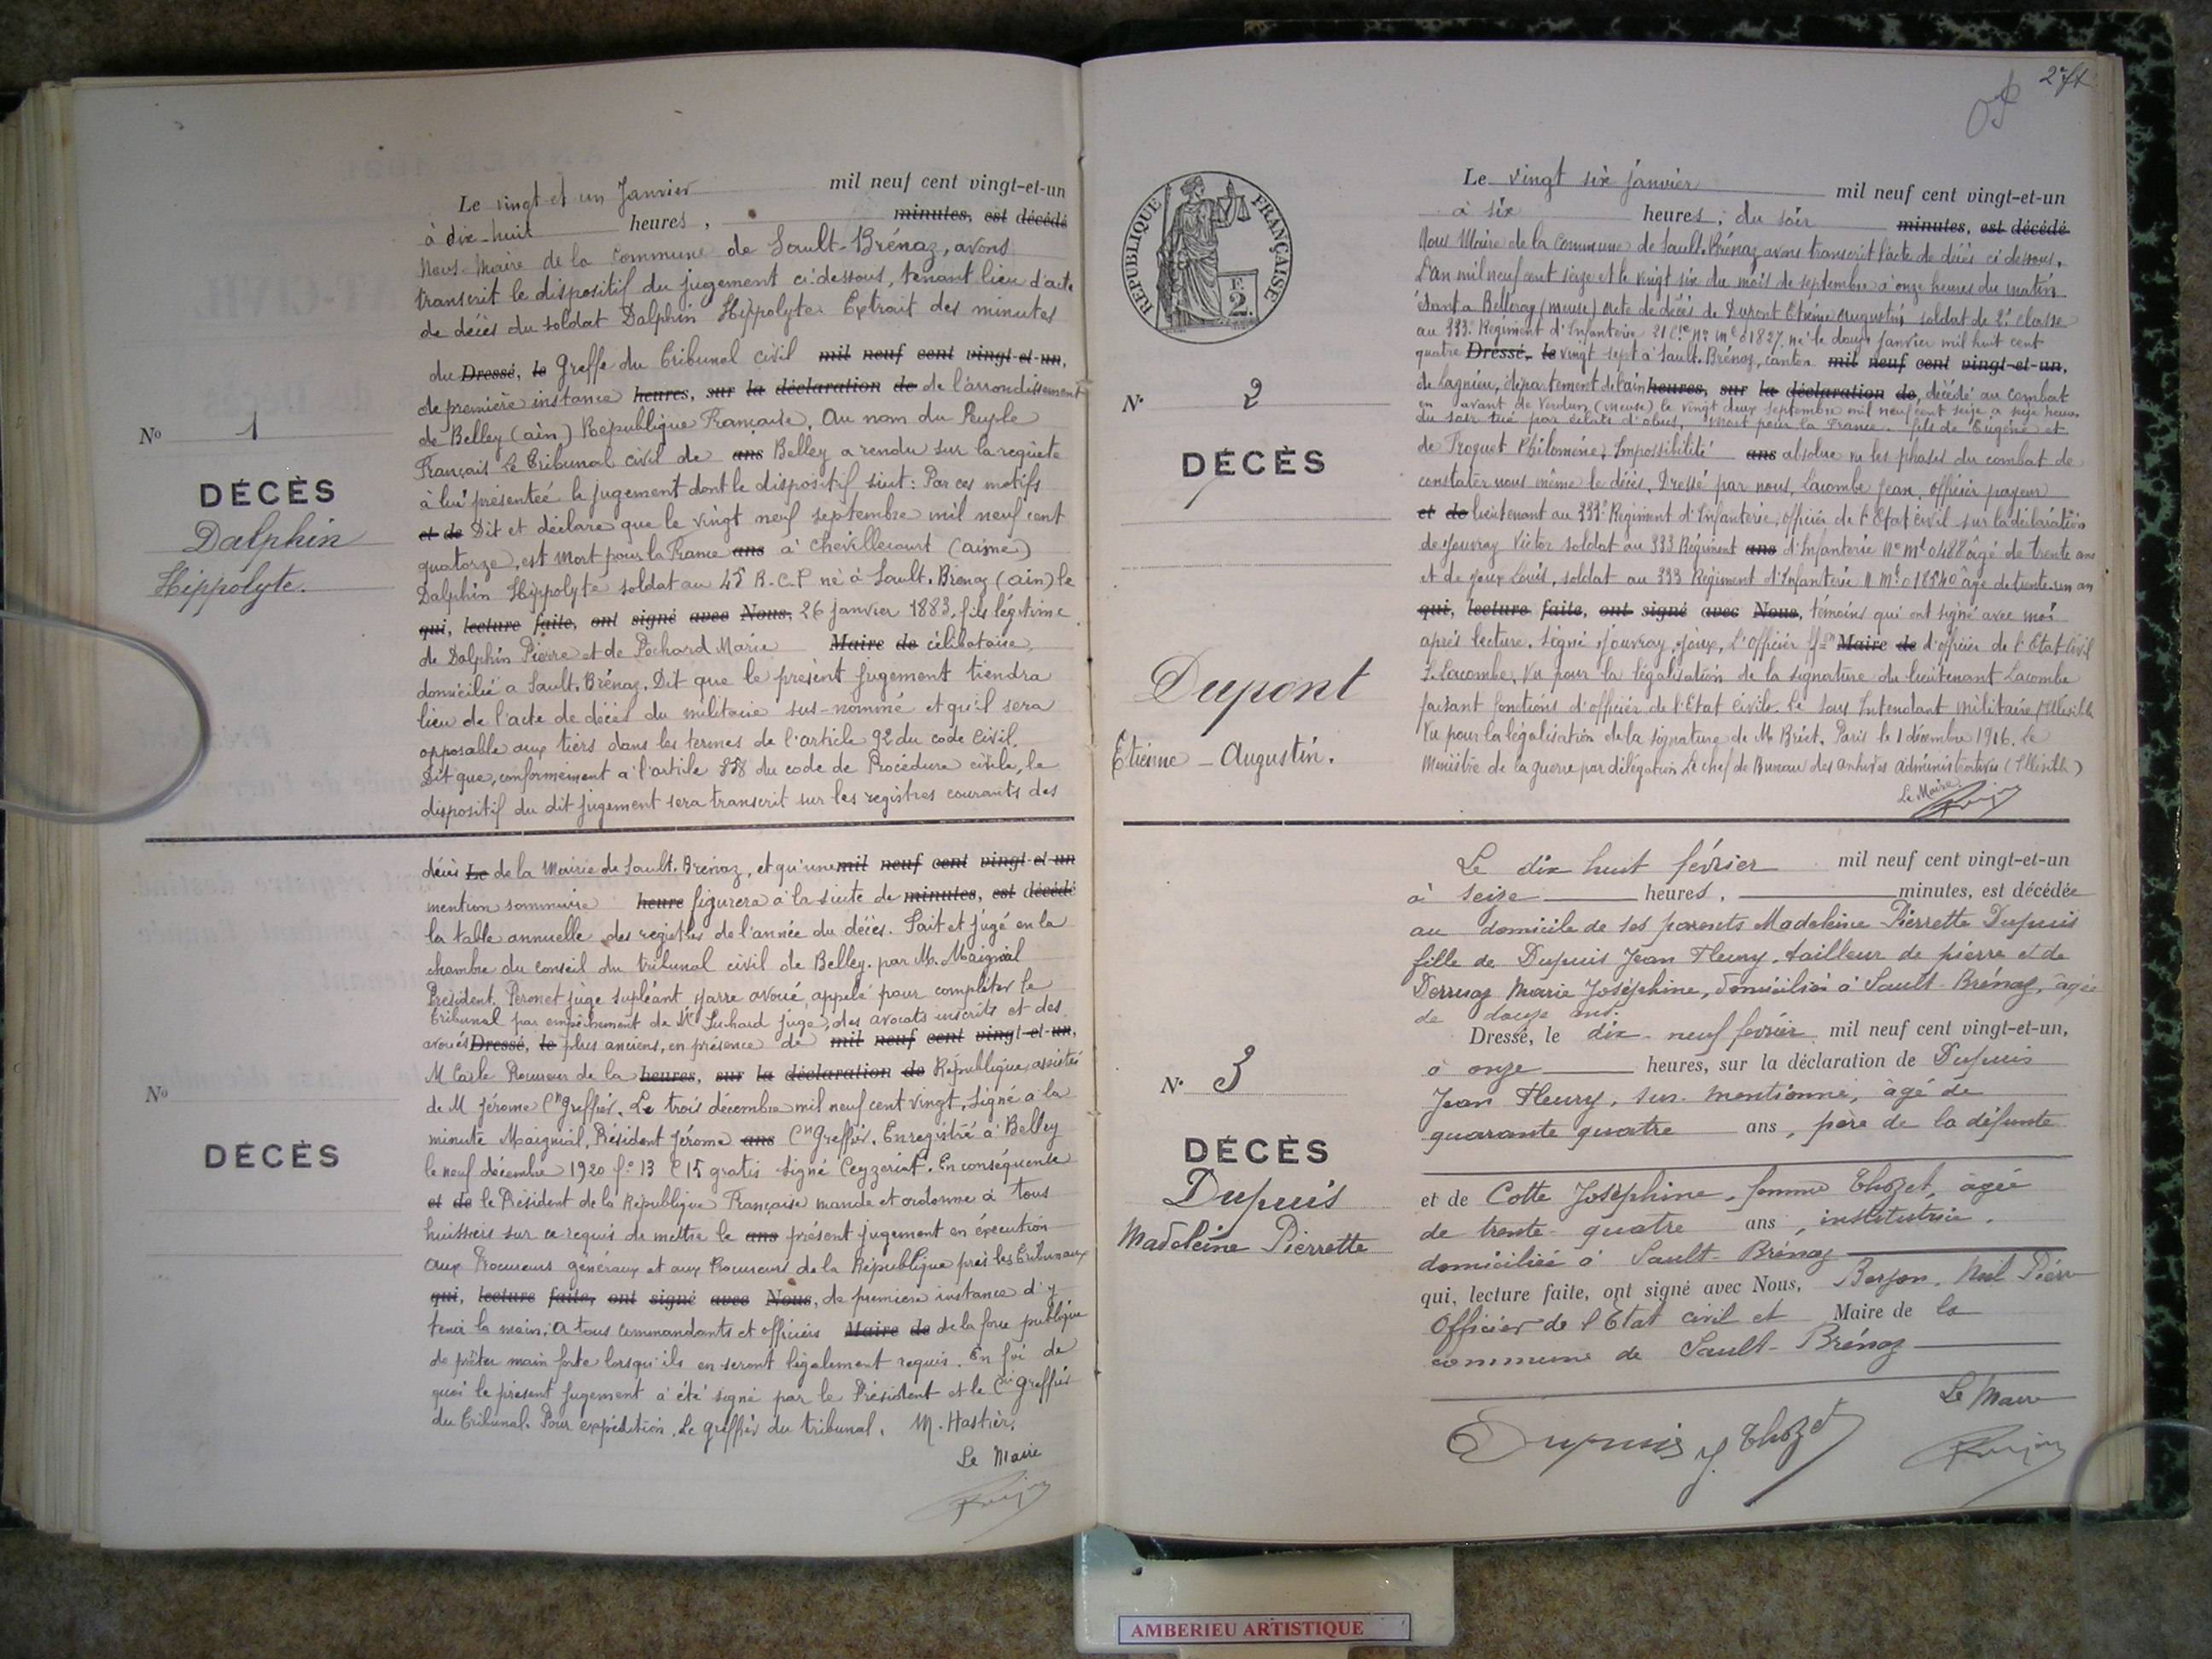 Le vingt et un Janvier mil neuf cent vingt-et-un
à dix-huit heures, minutes, est décédé
Nous Maire de la Commune de Sault-Brénaz, avons
transcrit le dispositif du jugement ci-dessous, tenant lieu d'acte
de décès du soldat Dalphin Hippolyte. Extrait des minutes
du Dressé, le Greffe du Tribunal civil mil neuf cent vingt-et-un,
de première instance heures, sur la déclaration de de l'arrondissement
de Belley (ain) République Française. Au nom du Peuple
Français Le Tribunal civil de ans Belley a rendu sur la requête
à lui présentée le jugement dont le dispositif suit: Par ces motifs
et de Dit et déclare que le vingt neuf septembre mil neuf cent
quatorze, est mort pour la France ans à Chevillecourt (aisne)
Dalphin Hippolyte soldat au 45 B.C.P né à Sault-Brenaz (ain) le
qui, lecture faite, ont signé avec Nous, 26 janvier 1883, fils légitime
de Dalphin Pierre et de Pochard Marie Maire de célibataire,
domicilié a Sault-Brénaz. Dit que le présent jugement tiendra
lieu de l'acte de décès du militaire sus-nommé et qu'il sera
opposable aux tiers dans les termes de l'article 92 du code Civil.
Dit que, conformément a l'article 858 du code de Procédure civile, le
dispositif du dit jugement sera transcrit sur les registres courants des
No 1
DÉCÈS
Dalphin
Hippolyte.
décès Le de la Mairie de Sault-Brénaz, et qu'une mil neuf cent vingt-et-un
mention sommaire heure figurera à la suite de minutes, est décédé
la table annuelle des registres de l'année du décès. Fait et jugé en la
chambre du conseil du tribunal civil de Belley. par M. Maignial
Président. Peronet juge supléant, Jarre avoué, appelé pour compléter le
Tribunal par empêchement de Mr Suchard juge, des avocats inscrits et des
avoués Dressé, le plus anciens, en présence de mil neuf cent vingt-et-un,
M Casle Procureur de la heures, sur la déclaration de République, assistés
de M Jérome Cn Greffier. Le trois décembre mil neuf cent vingt. Signé a la
minute Maignial, Président Jérome ans Cn Greffier. Enregistré à Belley
le neuf décembre 1920 fo 13 C 15 gratis signé Ceyzeriat. En conséquence
et de le Président de la République Française mande et ordonne à tous
huissiers sur ce requis de mettre le ans présent jugement en éxecution
aux Procureurs généraux et aux Procureurs de la République près les Tribunaux
qui, lecture faite, ont signé avec Nous, de première instance d'y
tenir la main. A tous commandants et officiers Maire de de la force publique
de prêter main forte lorsqu'ils en seront légalement requis. En foi de
quoi le présent jugement a été signé par le Président et le Cis Greffier
du Tribunal. Pour expédition. Le greffier du tribunal. M. Hastier.
Le Maire
No
DÉCÈS
REPUBLIQUE FRANÇAISE
E 2.
Le vingt six janvier mil neuf cent vingt-et-un
à six heures, du soir minutes, est décédé
Nous Maire de la Commune de Sault-Brénaz avons transcrit l'acte de décès ci dessous.
L'an mil neuf cent seize et le vingt six du mois de septembre à onze heures du matin
étant a Belleray (meuse) acte de décès de Dupont Etienne Augustin soldat de 2e classe
au 333e Regiment d'Infanterie 21 Cie No Mle 01827, né le douze janvier mil huit cent
quatre Dressé, le vingt sept à Sault-Brénaz, canton mil neuf cent vingt-et-un,
de Lagnieu, département de l'ain heures, sur la déclaration de, décédé au combat
en avant de Verdun (meuse) le vingt deux septembre mil neuf cent seize a seize heures
du soir tué par éclats d'obus, mort pour la France. fils de Eugène et
de Troquet Philomène; Impossibilité ans absolue vu les phases du combat de
constater nous même le décès. Dressé par nous, Lacombe Jean, officier payeur
et de lieutenant au 333e Régiment d'Infanterie, officier de l'Etat civil sur la déclaration
de Jouvray Victor soldat au 333 Régiment ans d'Infanterie No Mle 0488 âgé de trente ans
et de Joux Louis, soldat au 333 Regiment d'Infanterie N Mle 018540 âgé de trente-un an
qui, lecture faite, ont signé avec Nous, témoins qui ont signé avec moi
après lecture. Signé Jouvray, Joux, L'Officier ffon Maire de d'officier de l'Etat Civil
S. Lacombe, Vu pour la légalisation de la signature du lieutenant Lacombe
faisant fonctions d'officier de l'Etat Civile. Le Sous Intendant Militaire (Illisible
Vu pour la légalisation de la signature de M. Briet. Paris le 1 décembre 1916. le
Ministre de la guerre par délégation Le chef de Bureau des archives administratives (Illisible)
Le Maire
No 2
DÉCÈS
Dupont
Etienne - Augustin.
Le dix huit février mil neuf cent vingt-et-un
à seize heures, minutes, est décédée
au domicile de ses parents Madeleine Pierrette Dupuis
fille de Dupuis Jean Fleury, tailleur de pierre et de
Derruaz Marie Joséphine, domiciliés à Sault-Brénaz, âgée
de douze ans.
Dressé, le dix-neuf février mil neuf cent vingt-et-un,
à onze heures, sur la déclaration de Dupuis
Jean Fleury, sus-mentionné, âgé de
quarante quatre ans, père de la défunte
et de Cotte Joséphine, femme Thozet, âgée
de trente-quatre ans, institutrice,
domiciliée à Sault-Brénaz
qui, lecture faite, ont signé avec Nous, Berjon, Noël Pierre
Officier de l'Etat civil et Maire de la
commune de Sault-Brénaz
Le Maire
Dupuis J. Thozet
No 3
DÉCÈS
Dupuis
Madeleine Pierrette
AMBERIEU ARTISTIQUE